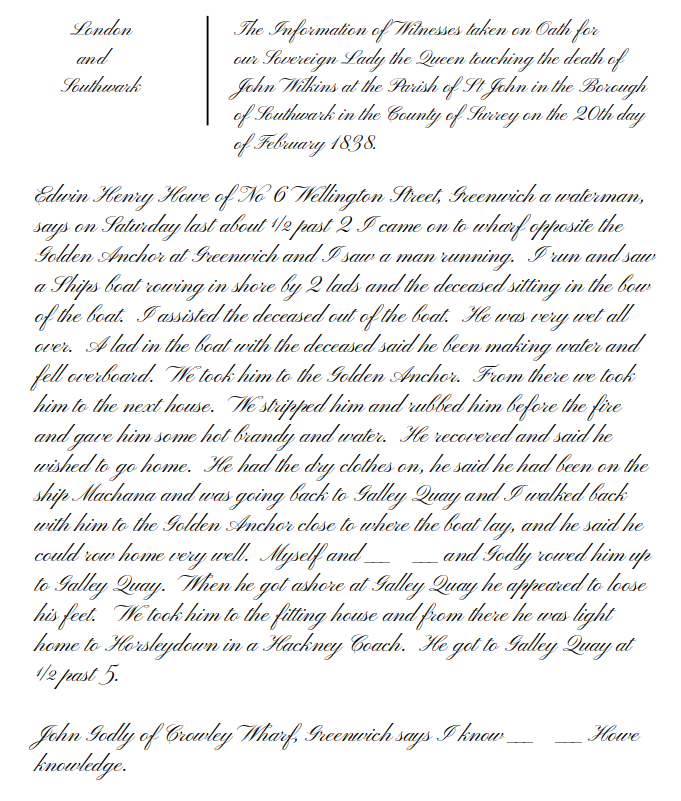 London
and
Southwark
The Information of Witnesses taken on Oath for
our Sovereign Lady the Queen touching the death of
John Wilkins at the Parish of St John in the Borough
of Southwark in the County of Surrey on the 20th day
of February 1838.
Edwin Henry Howe of No 6 Wellington Street, Greenwich a waterman,
says on Saturday last about 1/2 past 2 I came on to wharf opposite the
Golden Anchor at Greenwich and I saw a man running. I run and saw
a Ships boat rowing in shore by 2 lads and the deceased sitting in the bow
of the boat. I assisted the deceased out of the boat. He was very wet all
over. A lad in the boat with the deceased said he been making water and
fell overboard. We took him to the Golden Anchor. From there we took
him to the next house. We stripped him and rubbed him before the fire
and gave him some hot brandy and water. He recovered and said he
wished to go home. He had the dry clothes on, he said he had been on the
ship Machana and was going back to Galley Quay and I walked back
with him to the Golden Anchor close to where the boat lay, and he said he
could row home very well. Myself and __ __ and Godly rowed him up
to Galley Quay. When he got ashore at Galley Quay he appeared to loose
his feet. We took him to the fitting house and from there he was light
home to Horsleydown in a Hackney Coach. He got to Galley Quay at
1/2 past 5.
John Godly of Crowley Wharf, Greenwich says I know __ __ Howe
knowledge.